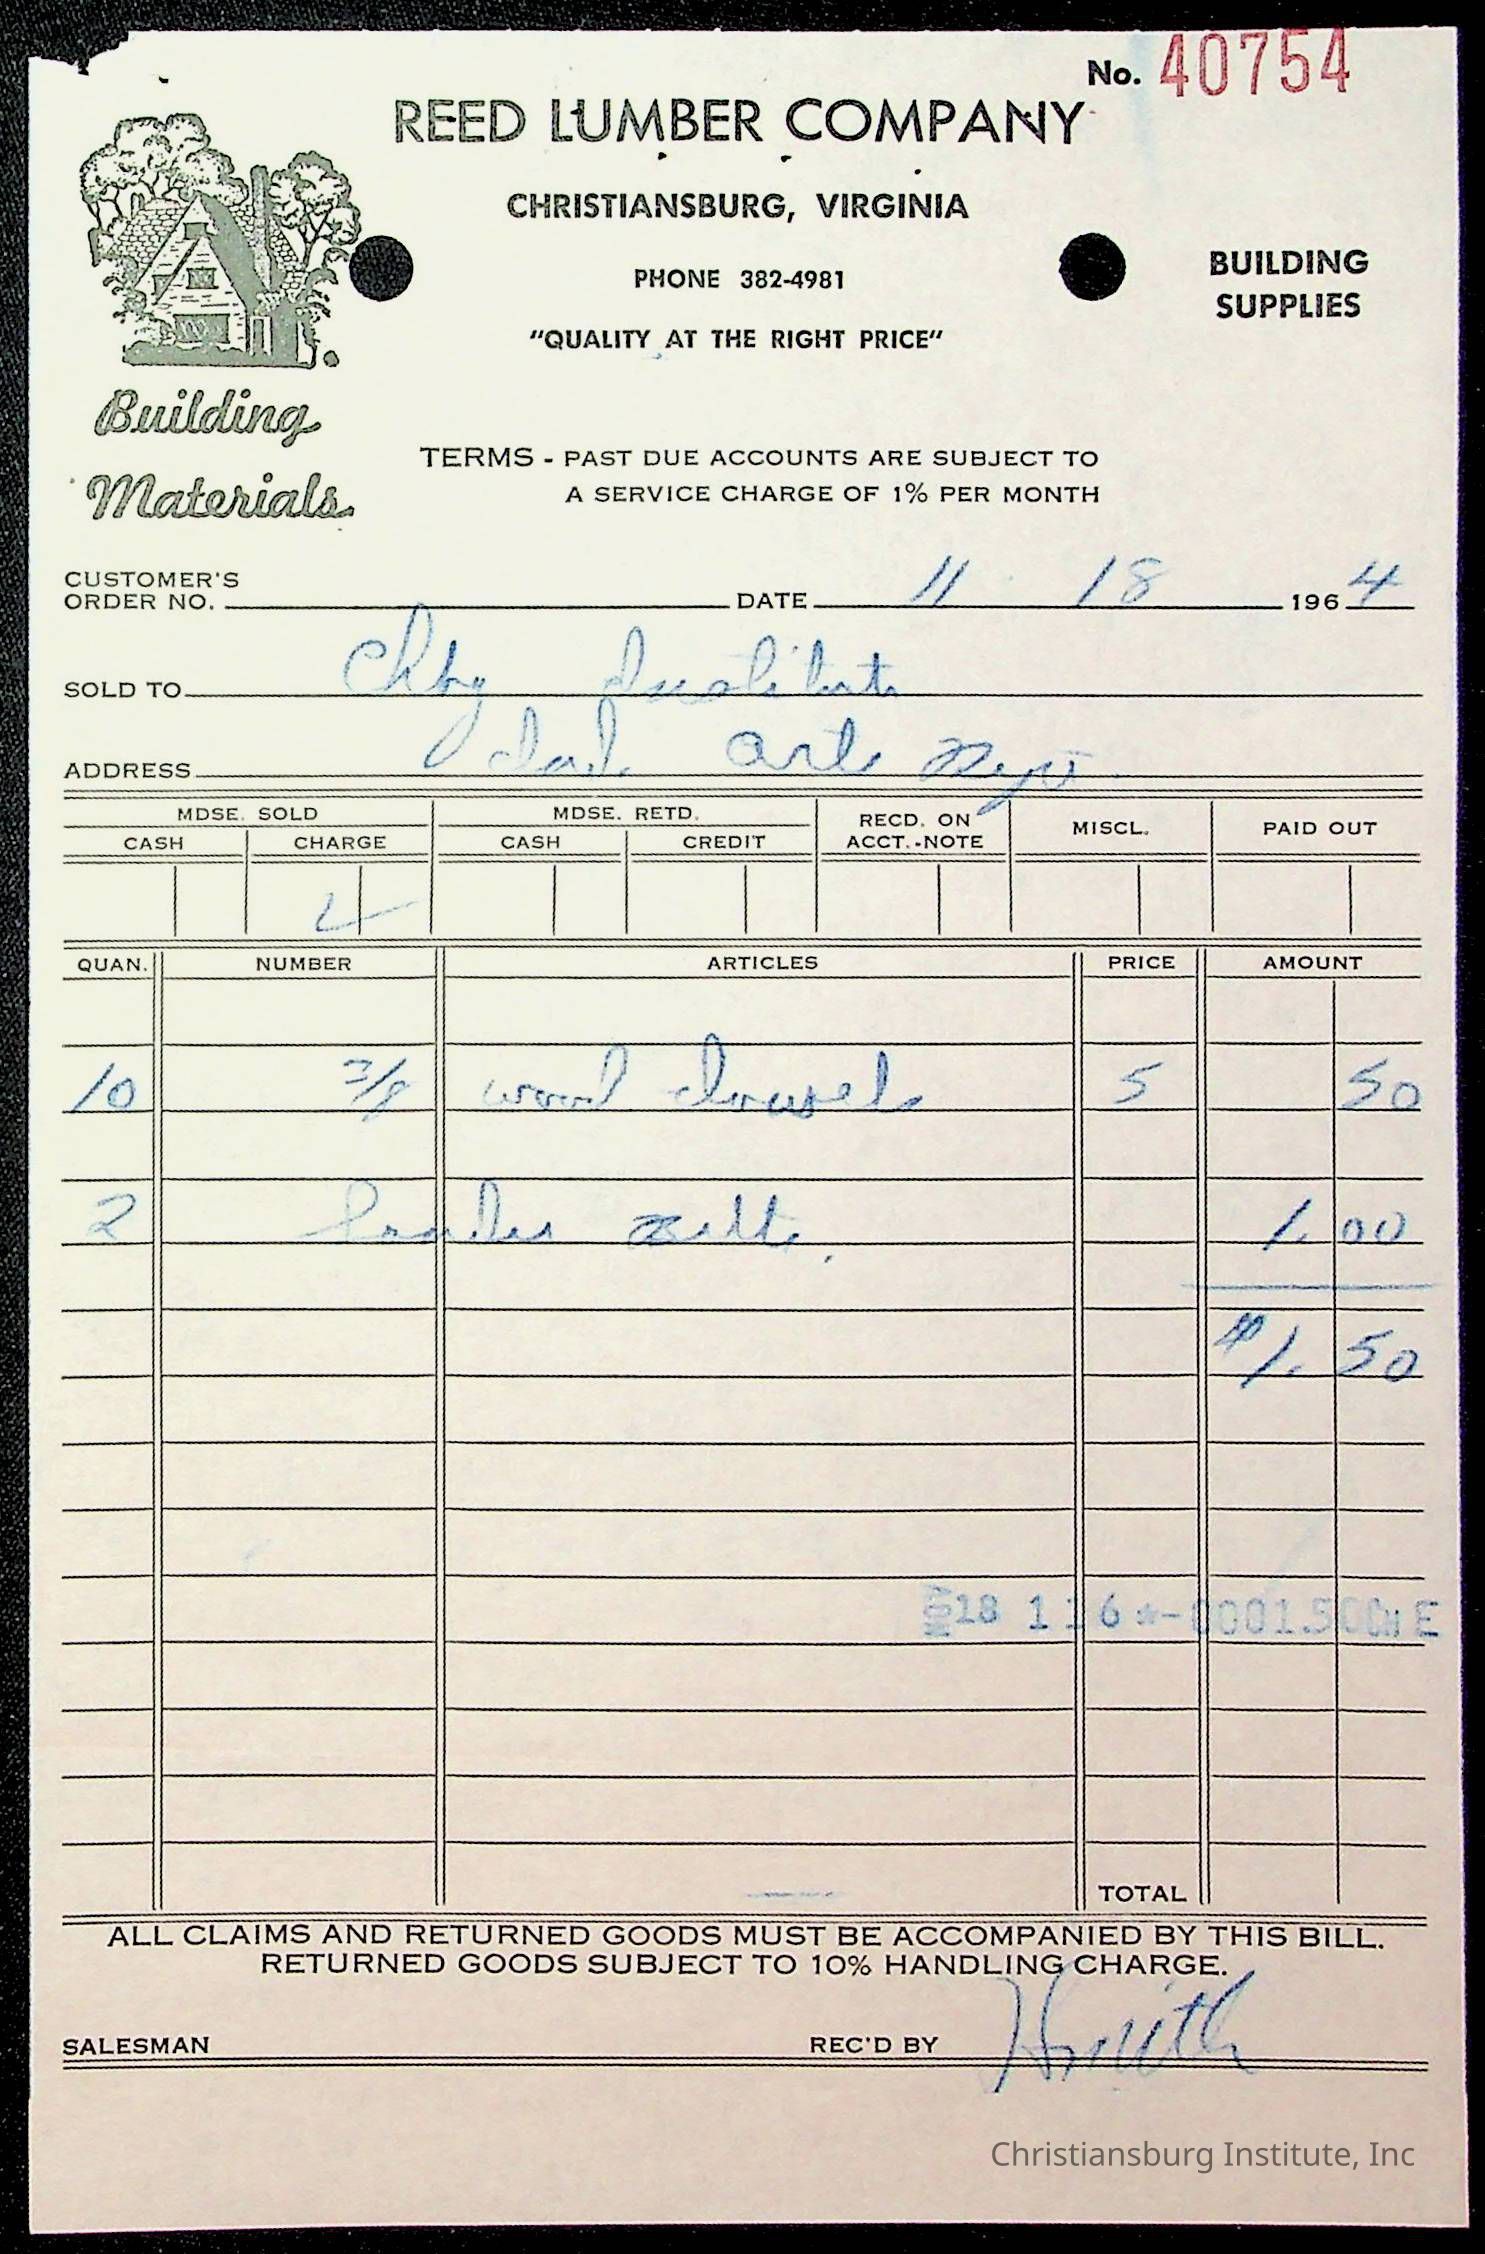 No. 40754
REED LUMBER COMPANY
CHRISTIANSBURG, VIRGINIA
PHONE 382-4981
"QUALITY AT THE RIGHT PRICE"
BUILDING
SUPPLIES
Building
Materials
TERMS - PAST DUE ACCOUNTS ARE SUBJECT TO
A SERVICE CHARGE OF 1% PER MONTH
CUSTOMER'S
ORDER NO. DATE 11 18 1964
SOLD TO Chbg Institute
ADDRESS Ind. Arts Dept.
MDSE. SOLD MDSE. RETD. RECD. ON ACCT.-NOTE MISCL. PAID OUT
CASH CHARGE CASH CREDIT
QUAN. NUMBER ARTICLES PRICE AMOUNT
10 3/8 wood dowels 5 50
2 1.00
$1.50
NOV 18 1 16 *-0001.50 CH E
TOTAL
ALL CLAIMS AND RETURNED GOODS MUST BE ACCOMPANIED BY THIS BILL.
RETURNED GOODS SUBJECT TO 10% HANDLING CHARGE.
SALESMAN REC'D BY HSmith
Christiansburg Institute, Inc